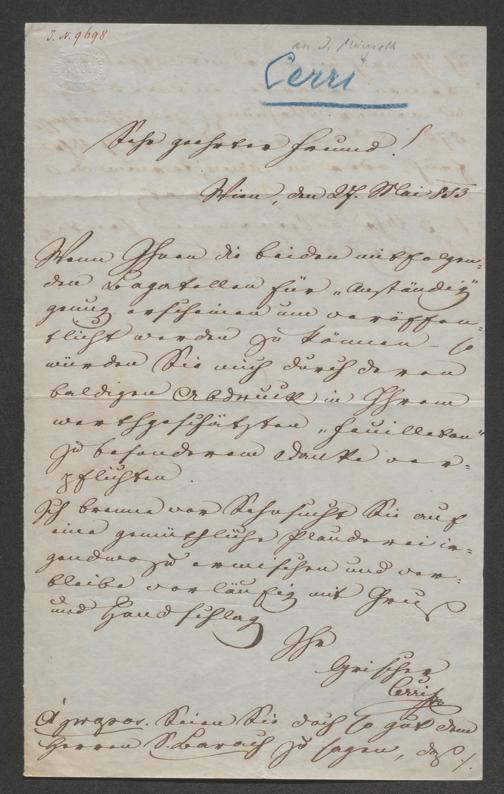 J. N. 9698
an J.
Cerri
Sehr geehrter Freund!
Wien, den 27. Mai 853
Wenn Ihnen die beiden mitfolgen-
den Bagatellen für „anständig"
genug erscheinen um veröffen-
tlicht werden zu können – so
würden Sie mich durch deren
baldigen Abdruck in Ihrem
werthgeschätzten „Feuilleton"
zu besonderem Danke ver-
pflichten.
Ich brenne vor Sehnsucht Sie auf
eine gemüthliche Plauderei ir-
gendwo zu erwischen und ver-
bleibe vorläufig mit Gruß
und Handschlag
Ihr
Cerri
Apropos. Seien Sie doch so gut dem
Herren S. Barach zu sagen, daß ./.